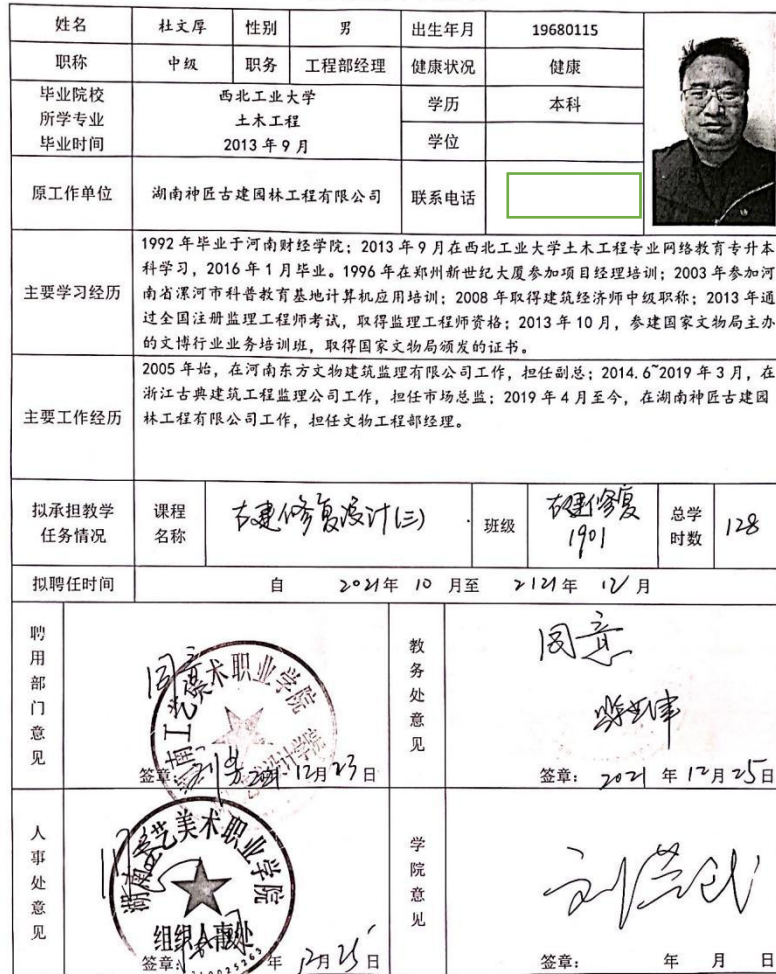 姓名 杜文厚 性别 男 出生年月 19680115
职称 中级 职务 工程部经理 健康状况 健康
毕业院校 西北工业大学 学历 本科
所学专业 土木工程
毕业时间 2013年9月 学位
原工作单位 湖南神匠古建园林工程有限公司 联系电话
主要学习经历
1992年毕业于河南财经学院；2013年9月在西北工业大学土木工程专业网络教育专升本
科学习，2016年1月毕业。1996年在郑州新世纪大厦参加项目经理培训；2003年参加河
南省漯河市科普教育基地计算机应用培训；2008年取得建筑经济师中级职称；2013年通
过全国注册监理工程师考试，取得监理工程师资格；2013年10月，参建国家文物局主办
的文博行业业务培训班，取得国家文物局颁发的证书。
主要工作经历
2005年始，在河南东方文物建筑监理有限公司工作，担任副总；2014.6~2019年3月，在
浙江古典建筑工程监理公司工作，担任市场总监；2019年4月至今，在湖南神匠古建园
林工程有限公司工作，担任文物工程部经理。
拟承担教学 课程 古建修复设计(三) 班级 古建修复 总学 128
任务情况 名称 1901 时数
拟聘任时间 自 2021年 10 月至 2121年 12 月
聘用部门意见
同意
湖南工艺美术职业学院
签章： 2021 12月23日
教务处意见
同意
签章： 2021 年 12月25日
人事处意见
湖南工艺美术职业学院
组织人事处
签章： 年 12月25日
学院意见
签章： 年 月 日